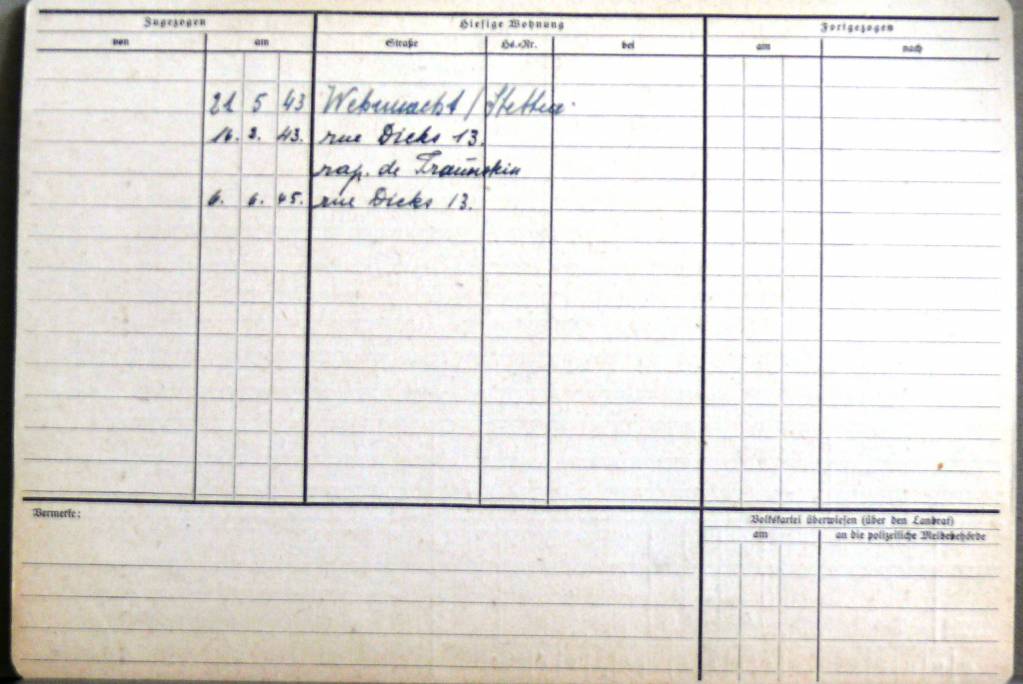 Zugezogen Hiesige Wohnung Fortgezogen
von am Straße Hs.-Nr. bei am nach
21 5 43 Wehrmacht / Stettin
16. 2. 43. rue Dicks 13.
rap. de Traunstein
6. 6. 45. rue Dicks 13.
Vermerke:
Volkskartei überwiesen (über den Landrat)
am an die polizeiliche Meldebehörde